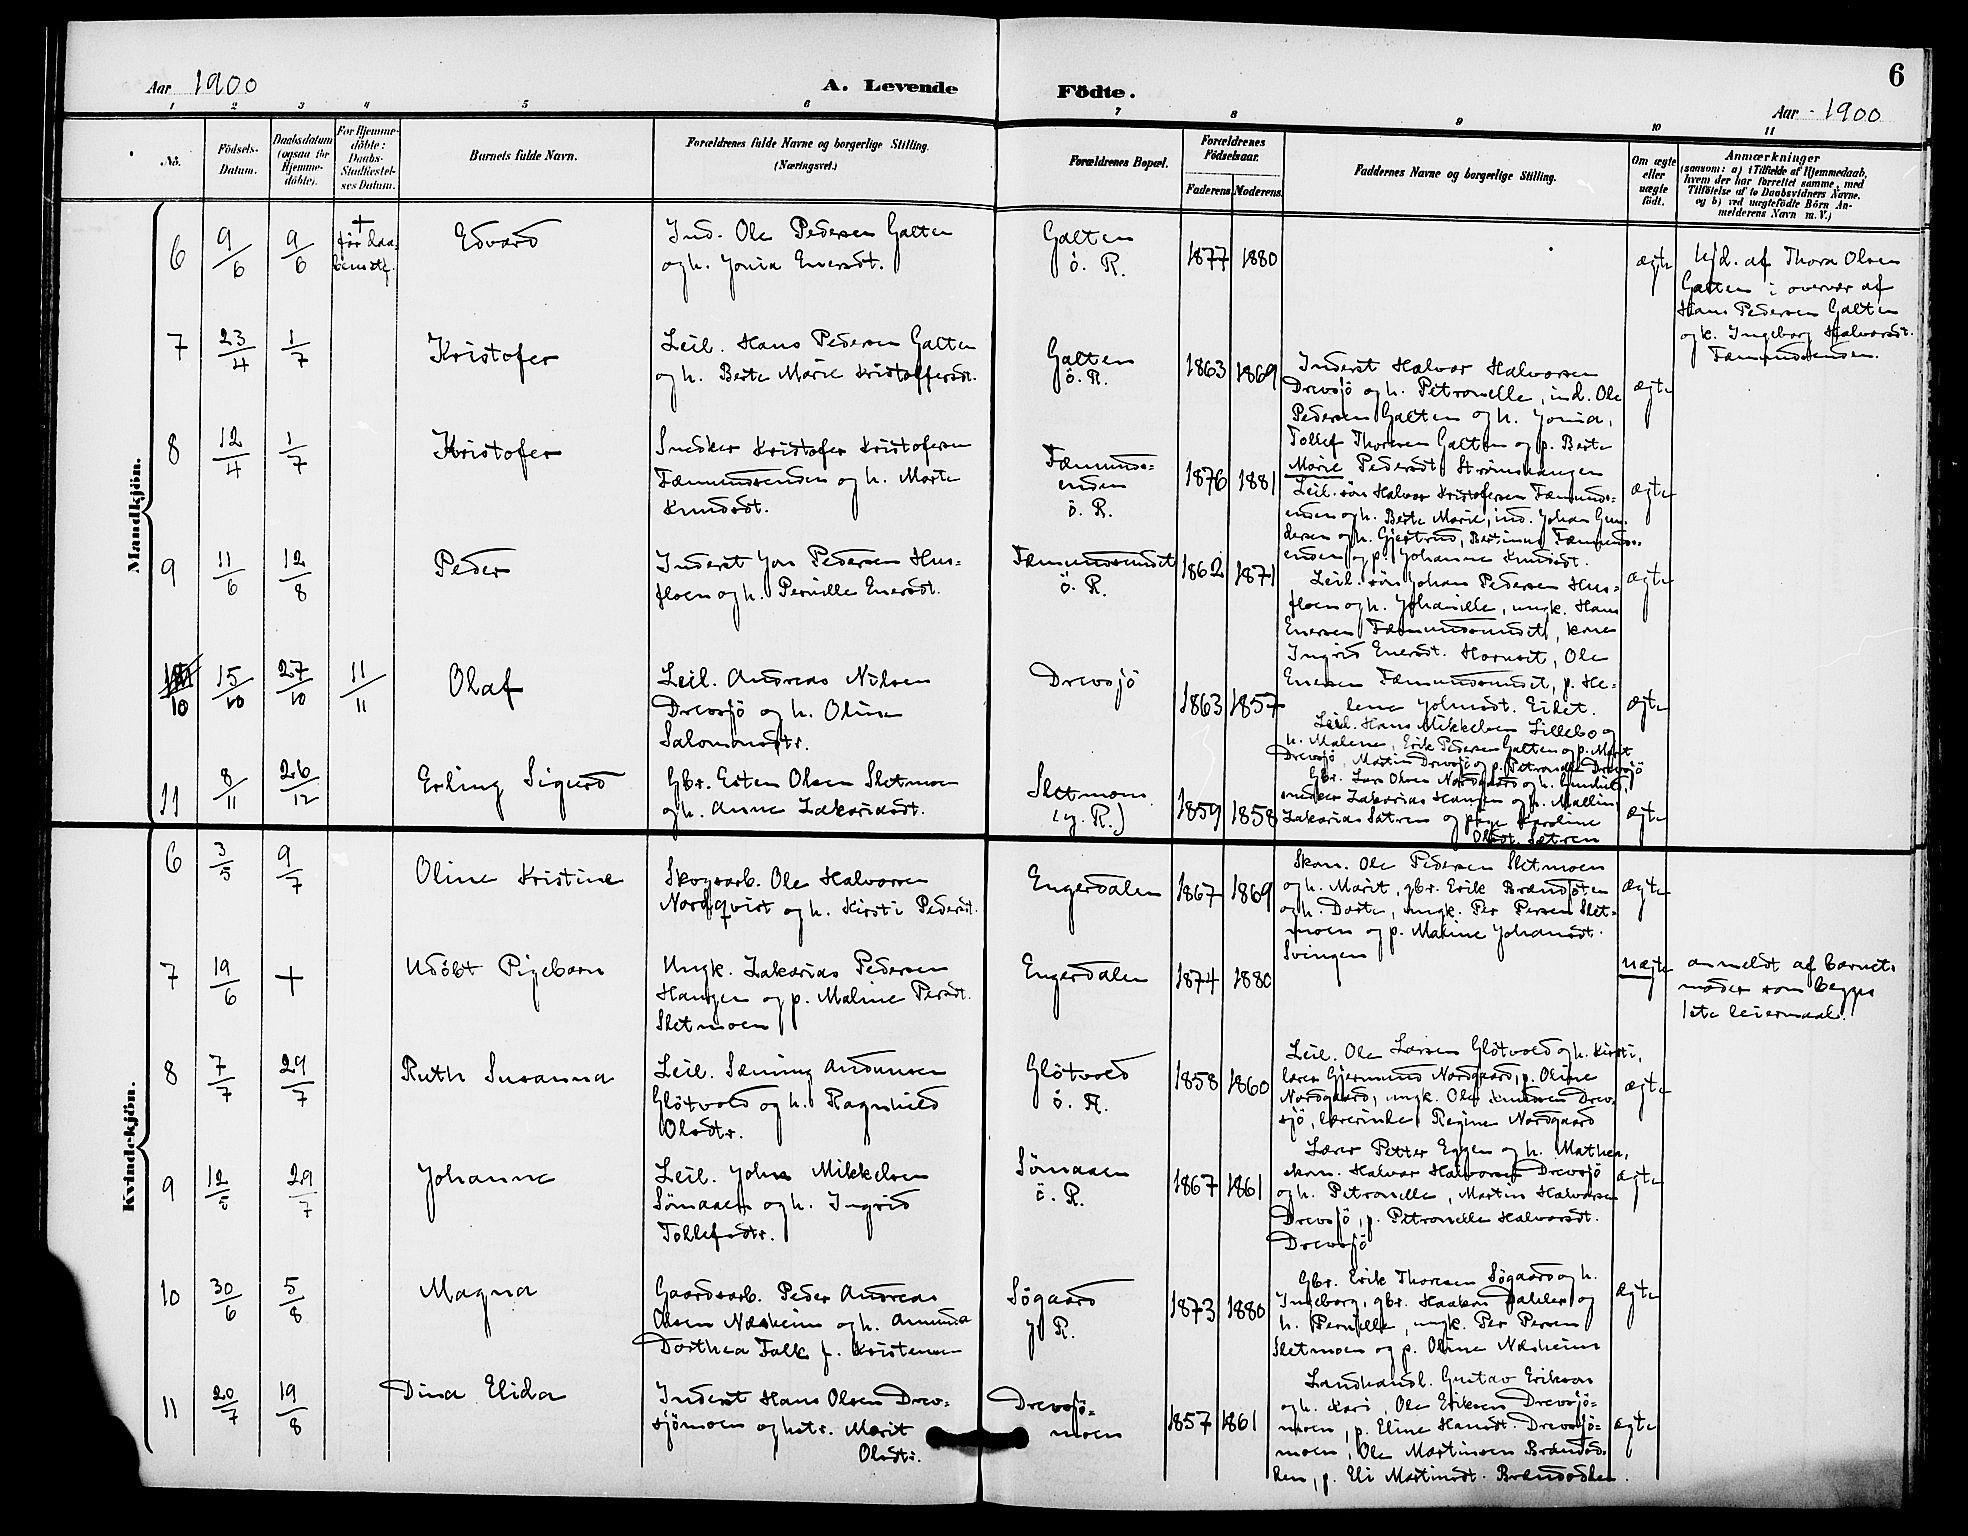 6
Aar 1900
A. Levende
Födte.
Aar 1900
1 2 3 4 5 6 7 8 9 10 11
No.
Födsels-
Datum.
Daabsdatum
(ogsaa for
Hjemme-
döbte).
For Hjemme-
döbte:
Daabs-
Stadfæstel-
ses Datum.
Barnets fulde Navn.
Forældrenes fulde Navne og borgerlige Stilling.
(Næringsvei.)
Forældrenes Bopæl.
Forældrenes
Födselsaar.
Faderens. Moderens.
Faddernes Navne og borgerlige Stilling.
Om ægte
eller
uægte
födt.
Anmærkninger
(saasom: a) i Tilfælde af Hjemmedaab,
hvem der har forrettet samme, med
Tilföielse af to Daabsvidners Navne,
og b) ved uægtefödte Börn An-
melderens Navn m. V.)
Mandkjön.
6 9/6 9/6 + før
Edvard
Ind. Ole Pedersen Galten
og h. Jonia Enersdt.
Galten
ö. R.
1877 1880
ægte
Hjd. af Thora Olsen
Galten i overvær af
Hans Pedersen Galten
og k. Ingeborg Halvorsdt.
Fæmundsenden.
7 23/4 1/7
Kristofer
Leil. Hans Pedersen Galten
og h. Berte Marie Kristoffersdt.
Galten
ö. R.
1863 1869
Inderst Halvor Halvorsen
Drevsjö og h. Petronelle, ind. Ole
Pedersen Galten og h. Jonia,
Tollef Thoresen Galten og p. Berte
Marie Pedersdt. Strömshaugen
ægte
8 12/4 1/7
Kristofer
Snedker Kristofer Kristofersen
Fæmundsenden og h. Marte
Knudsdt.
Fæmunds-
enden
ö. R.
1876 1881
Leil. sön Halvor Kristofersen Fæmunds-
enden og h. Berte Marie, ind. Johan Gun-
dersen og h. Gjertrud, Bertinus Fæmunds-
enden og p. Johanne Knudsdt.
ægte
9 11/6 12/8
Peder
Inderst Jon Pedersen Hus-
floen og h. Pernille Enersdt.
Fæmundsundet
ö. R.
1862 1871
Leil. sön Johan Pedersen Hus-
floen og h. Johanille, ungk. Hans
Enersen Fæmundsundet, kone
Ingrid Enersdt. Hornset, Ole
Enersen Fæmundsundet, p. He-
lene Johnsdt. Eidet.
ægte
10 15/10 27/10 11/11
Olaf
Leil. Andreas Nilsen
Drevsjö og h. Oline
Salomonsdtr.
Drevsjö
1863 1857
Leil. Hans Mikkelsen Lillebo og
h. Malene, Erik Pedersen Galten og p. Marit
Drevsjö, Martin Drevsjö og p. Petronelle Drevsjö
ægte
11 8/11 26/12
Erling Sigurd
Gbr. Esten Olsen Sletmoen
og h. Anne Zakariasdt.
Sletmoen
(y. R.)
1859 1858
Gbr. Lars Olsen Nordgaard og h. Gunhild,
snedker Zakarias Haugen og h. Mallin,
Zakarias Sætren og pige Karoline
Olsdt. Sætren
ægte
Kvindekjön.
6 3/5 9/7
Oline Kristine
Skogsarb. Ole Halvorsen
Nordqvist og h. Kirsti Pedersdt.
Engerdalen
1867 1869
Skom. Ole Pedersen Sletmoen
og h. Marit, gbr. Erik Brændsten
og h. Dorte, ungk. Per Persen Slet-
moen og p. Maline Johansdt.
Svingen
ægte
7 19/6 +
Udöbt Pigebarn
Ungk. Zakarias Pedersen
Haugen og p. Maline Persdt.
Sletmoen
Engerdalen
1874 1880
uægte
anmeldt af barnets
moder som begges
1ste leiermaal.
8 7/7 29/7
Ruth Susanna
Leil. Sæming Andersen
Glötvold og h. Ragnhild
Olsdtr.
Glötvold
ö. R.
1858 1860
Leil. Ole Larsen Glötvold og h. Kirsti,
lærer Gjermund Nordgaard, p. Oline
Nordgaard, ungk. Ole Knudsen Drev-
sjö, lærerinde Regine Nordgaard
ægte
9 12/5 29/7
Johanne
Leil. John Mikkelsen
Sömaaen og h. Ingrid
Tollefsdtr.
Sömaaen
ö. R.
1867 1861
Lærer Petter Eggen og h. Mathea,
skom. Halvor Halvorsen Drevsjö
og h. Petronelle, Martin Halvorsen
Drevsjö, p. Petronelle Halvorsdt.
Drevsjö
ægte
10 30/6 5/8
Magna
Gaardsarb. Peder Andreas
Olsen Næsheim og h. Amunda
Dorthea Falk f. Kristensen
Sögaard
y. R.
1873 1880
Gbr. Erik Thoresen Sögaard og h.
Ingeborg, gbr. Haakon Dahlen og
h. Pernille, ungk. Per Persen
Sletmoen og p. Oline Næsheim
ægte
11 20/7 19/8
Dina Elida
Inderst Hans Olsen Drev-
sjömoen og hstr. Marit
Olsdtr.
Drevsjö-
moen
1857 1861
Landhandl. Gustav Eriksen
og h. Kari, Ole Eriksen Drevsjö-
moen, p. Eline Hansdt. Drevsjö-
moen, Ole Martinsen Brændsd-
ken, p. Eli Martinsdt. Brændsdken.
ægte